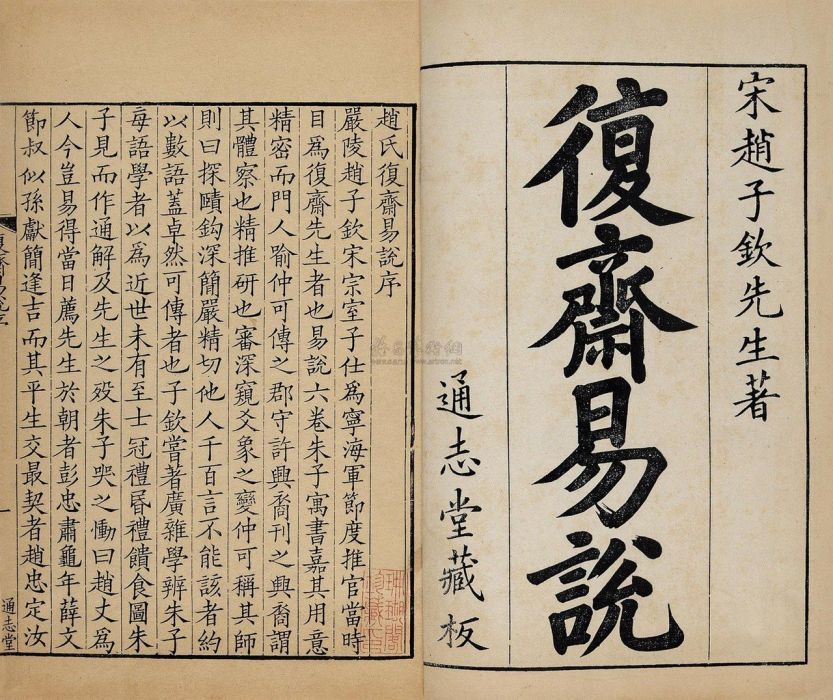 宋趙子欽先生著
復齋易說
通志堂藏板
趙氏復齋易說序
嚴陵趙子欽宋宗室子仕為寧海軍節度推官當時
目為復齋先生者也易說六卷朱子寓書嘉其用意
精密而門人喻仲可傳之郡守許興裔刊之興裔謂
其體察也精推研也審深窺爻象之變仲可稱其師
則曰探賾鈎深簡嚴精切他人千百言不能該者約
以數語蓋卓然可傳者也子欽嘗著廣雜學辨朱子
每語學者以為近世未有至士冠禮昬禮饋食圖朱
子見而作通解及先生之歿朱子哭之慟曰趙丈為
人今豈易得當日薦先生於朝者彭忠肅龜年薛文
節叔似孫獻簡逢吉而其平生交最契者趙忠定汝
一
通志堂